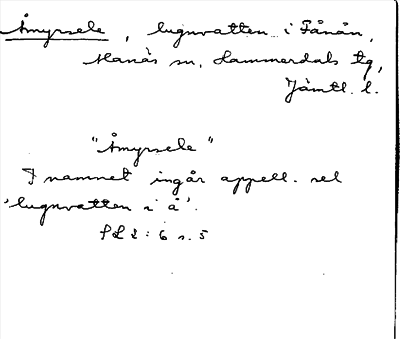 Åmyrsele, lugnvatten i Fånån,
Alanäs sn, Hammerdals tg,
Jämtl. l.
"Åmyrsele"
I namnet ingår appell. sel
'lugnvatten i å'.
SL 2:6 s. 5